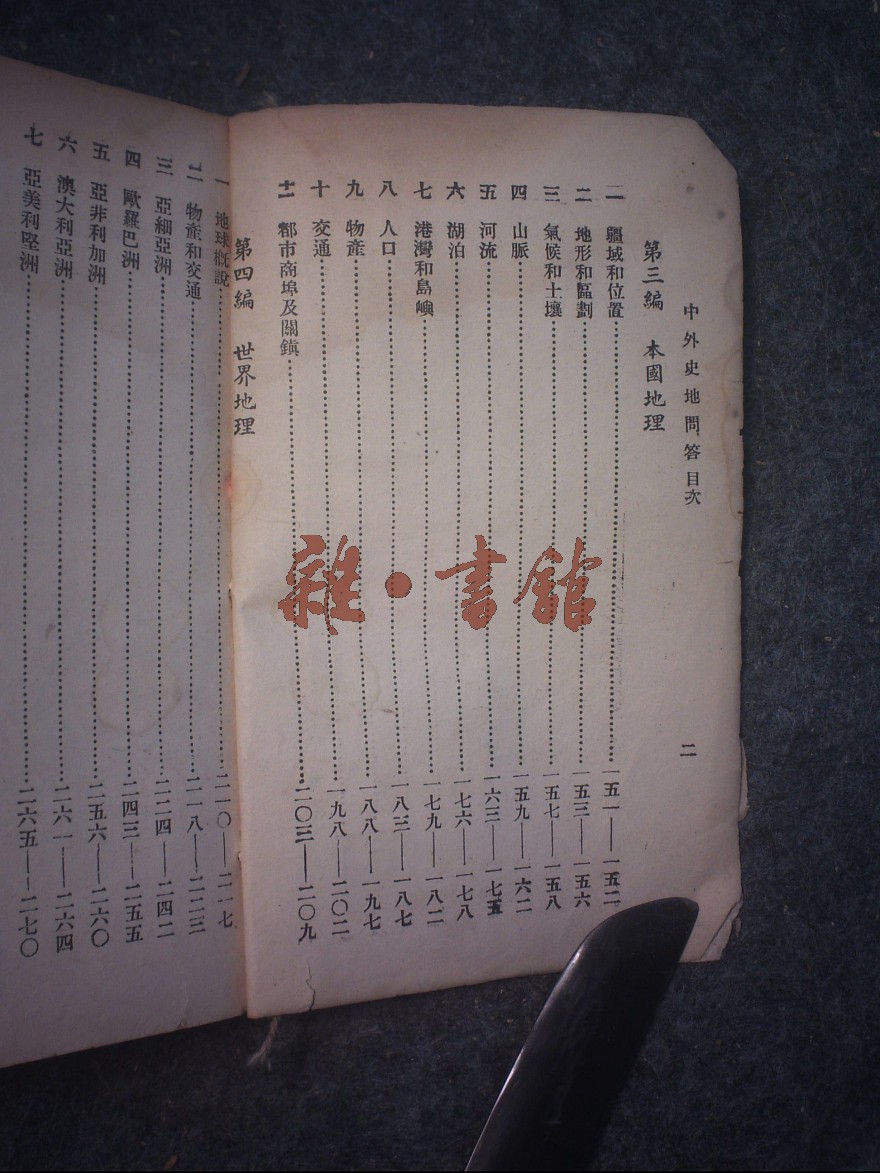 中外史地問答目次
二
第三編　本國地理
一　疆域和位置……一五一——一五二
二　地形和區劃……一五三——一五六
三　氣候和土壤……一五七——一五八
四　山脈……一五九——一六二
五　河流……一六三——一七五
六　湖泊……一七六——一七八
七　港灣和島嶼……一七九——一八二
八　人口……一八三——一八七
九　物產……一八八——一九七
十　交通……一九八——二〇二
十一　都市商埠及關鎮……二〇三——二〇九
第四編　世界地理
一　地球概說……二一〇——二一七
二　物產和交通……二一八——二二三
三　亞細亞洲……二二四——二四二
四　歐羅巴洲……二四三——二五五
五　亞非利加洲……二五六——二六〇
六　澳大利亞洲……二六一——二六四
七　亞美利堅洲……二六五——二七〇
雜·書館